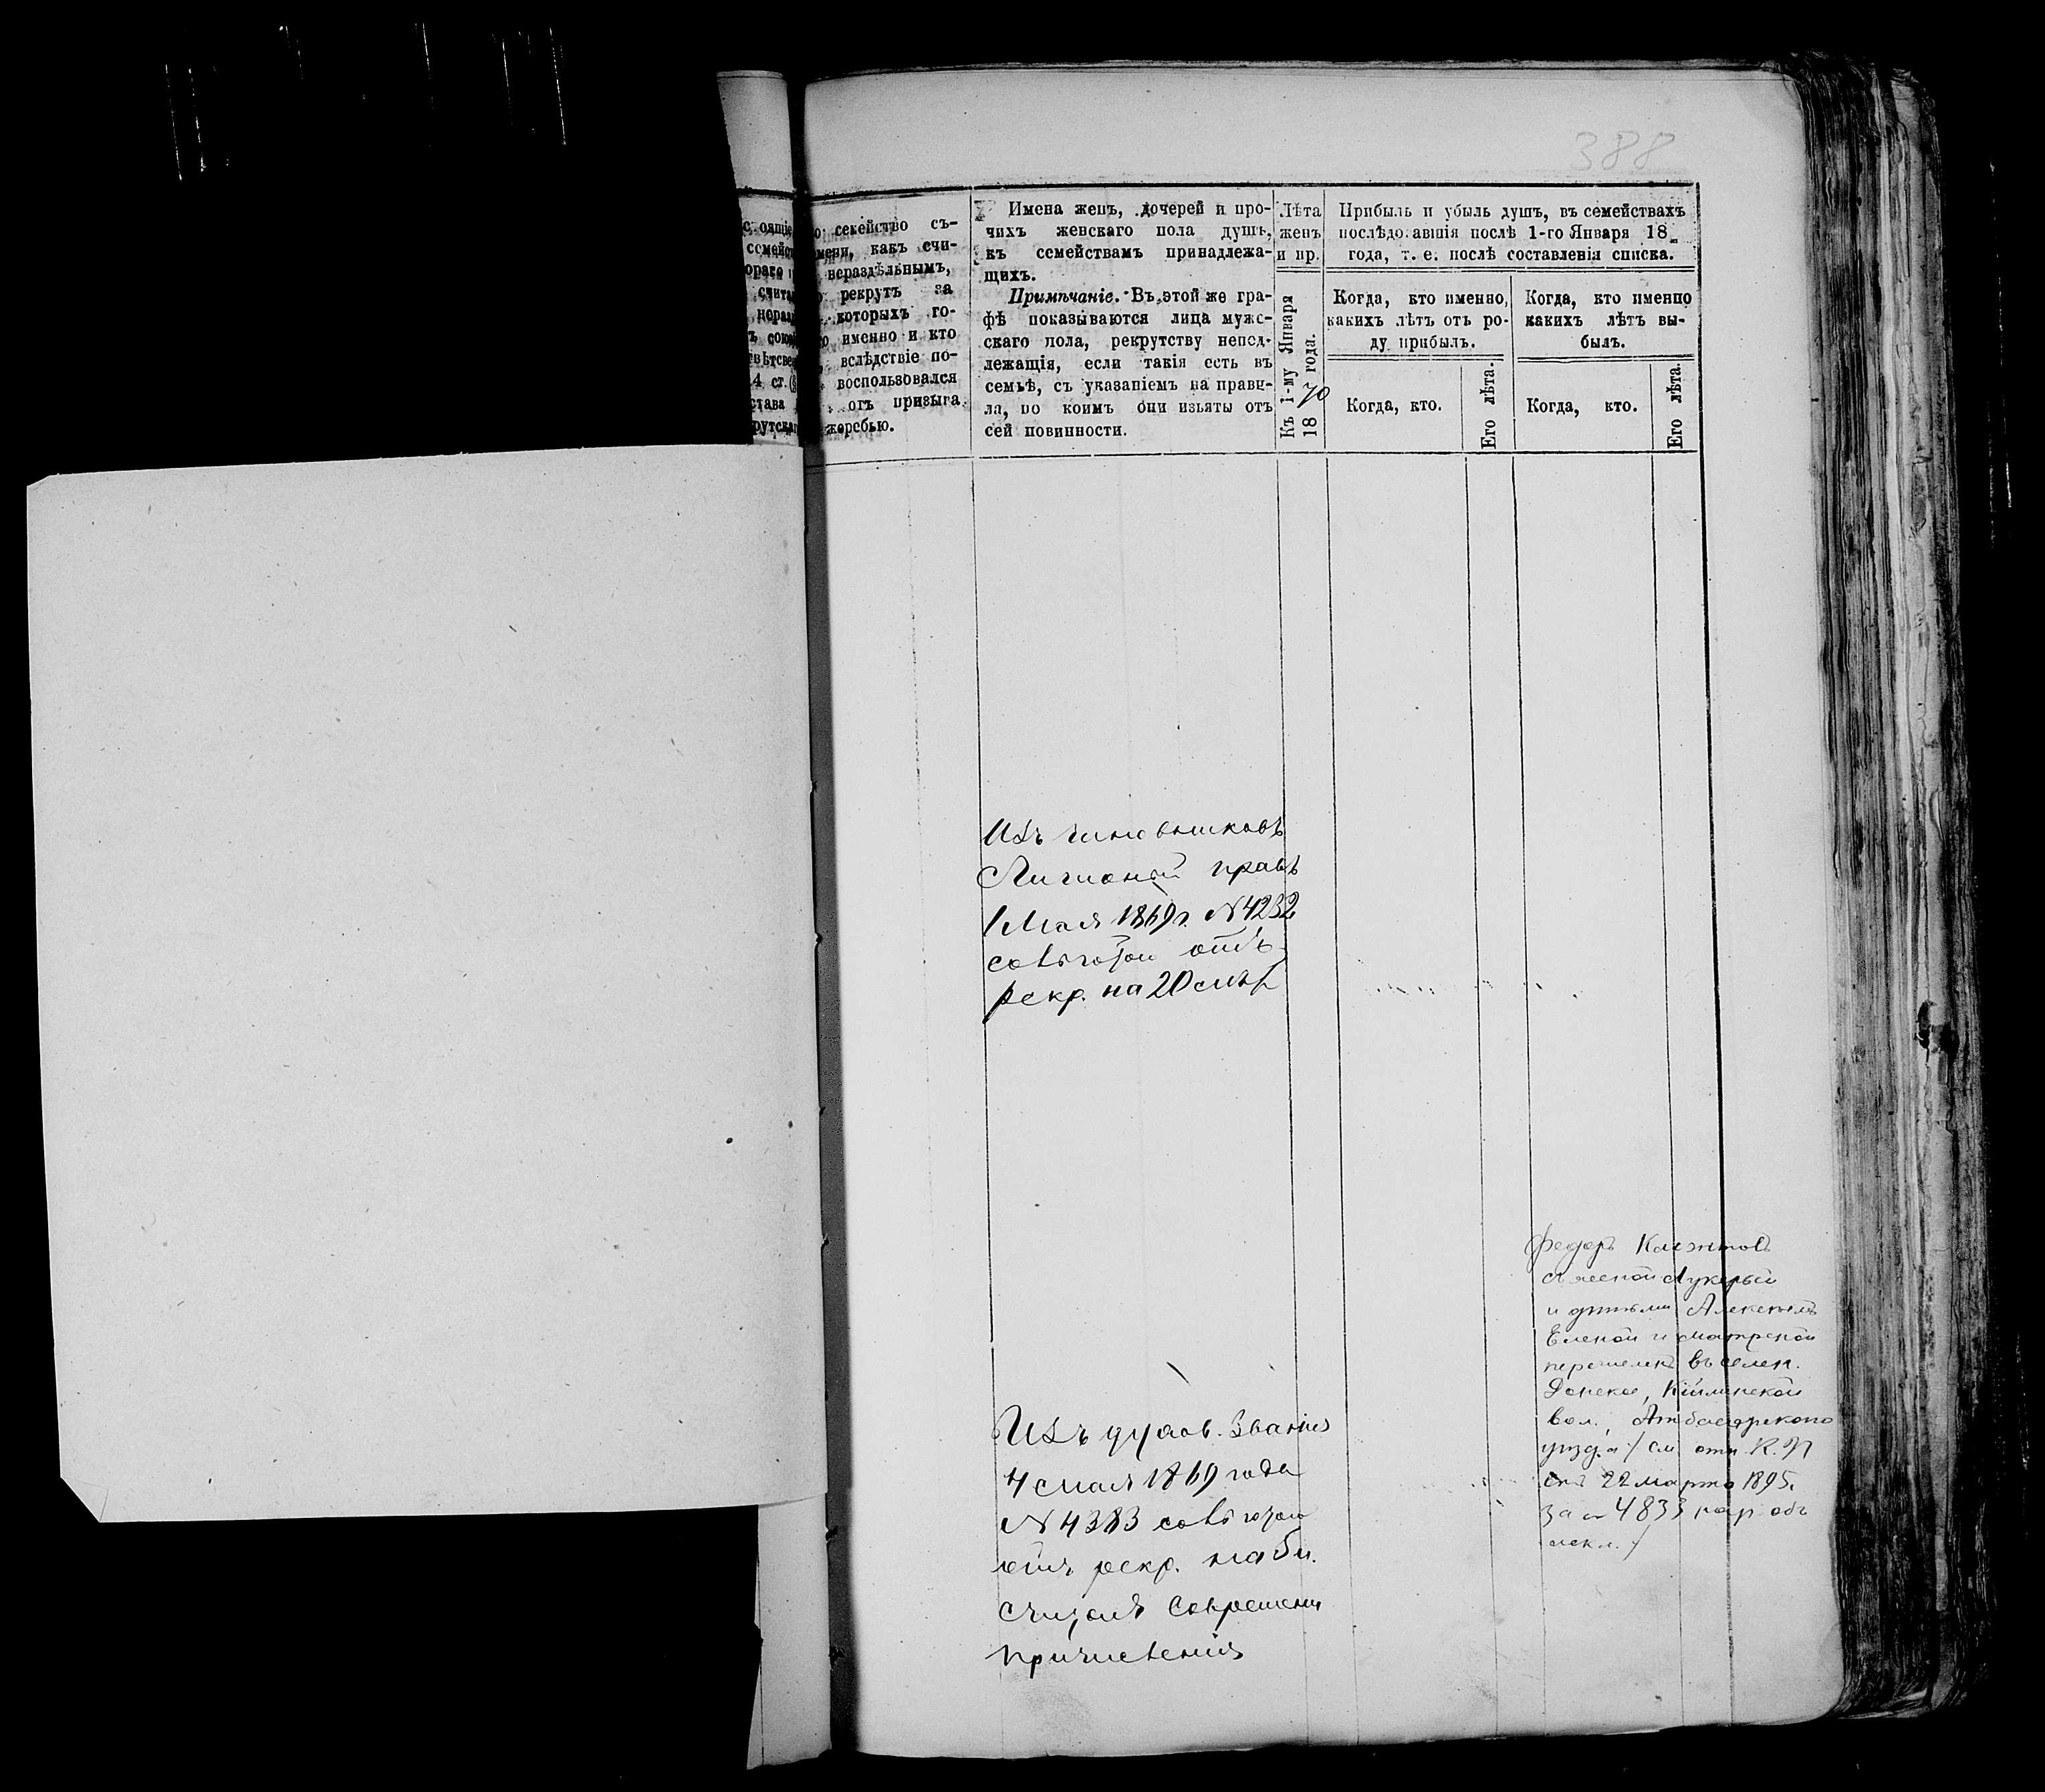 388
с. оящіе
семейст
ораго
счита
нераз
ъ союз
твѣтсве
14 ст.
става
рутска
о семейство съ-
мени, какъ счи-
нераздѣльнымъ,
рекрутъ за
которыхъ го-
о именно и кто
вслѣдствіе по-
воспользовался
отъ призыва
жеребью.
Имена женъ, дочерей и про-
чихъ женскаго пола душъ,
къ семействамъ принадлежа-
щихъ.
Примѣчаніе. Въ этой же гра-
фѣ показываются лица муже-
скаго пола, рекрутству непод-
лежащія, если такія есть въ
семьѣ, съ указаніемъ на прави-
ла, по коимъ они изъяты отъ
сей повинности.
Лѣта
женъ
и пр.
Къ 1-му Января
1870 года.
Прибыль и убыль душъ, въ семействахъ
послѣдовавшія послѣ 1-го Января 18
года, т. е. послѣ составленія списка.
Когда, кто именно,
какихъ лѣтъ отъ ро-
ду прибылъ.
Когда, кто.
Его лѣта.
Когда, кто именно
какихъ лѣтъ вы-
былъ.
Когда, кто.
Его лѣта.
Изъ чиновниковъ
прав
1 Мая 1869г. N 4232
съ льготою отъ
рекр. на 20 лѣт
Изъ духов. званія
4 мая 1869 года
N 4383 съ льготою
отъ рекр. на 6 л.
считая со времени
причисленія
Федоръ
съ женой Лукерьей
и дѣтьми Алексѣемъ
Еленой и Матреной
перечислен въ селен.
Донское, Кійминской
вол., Атбасарскаго
уѣзда / см отн. К. П
отъ 22 марта 1895.
за N 4833 кар. объ
искл. /